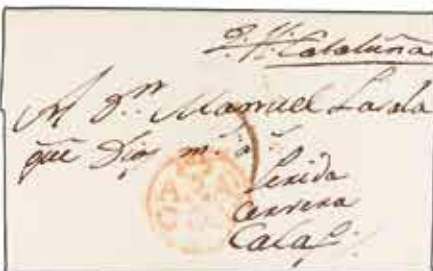 Cataluña
A Dn Manuel Lasala
que Dios ms as
Lerida
cervera
Calaf